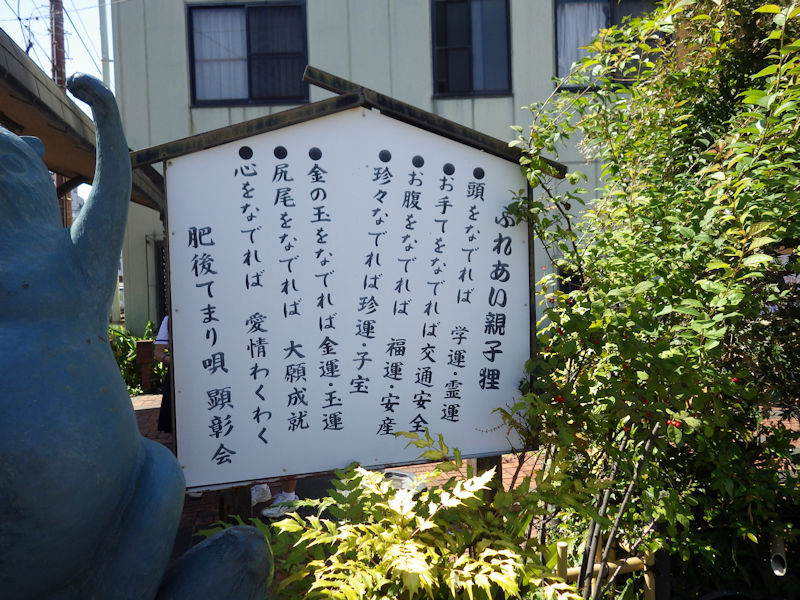 ふれあい親子狸
●頭をなでれば 学運・霊運
●お手てをなでれば交通安全
●お腹をなでれば 福運・安産
●珍々なでれば珍運・子宝
●金の玉をなでれば金運・玉運
●尻尾をなでれば 大願成就
●心をなでれば 愛情わくわく
肥後てまり唄 顕彰会